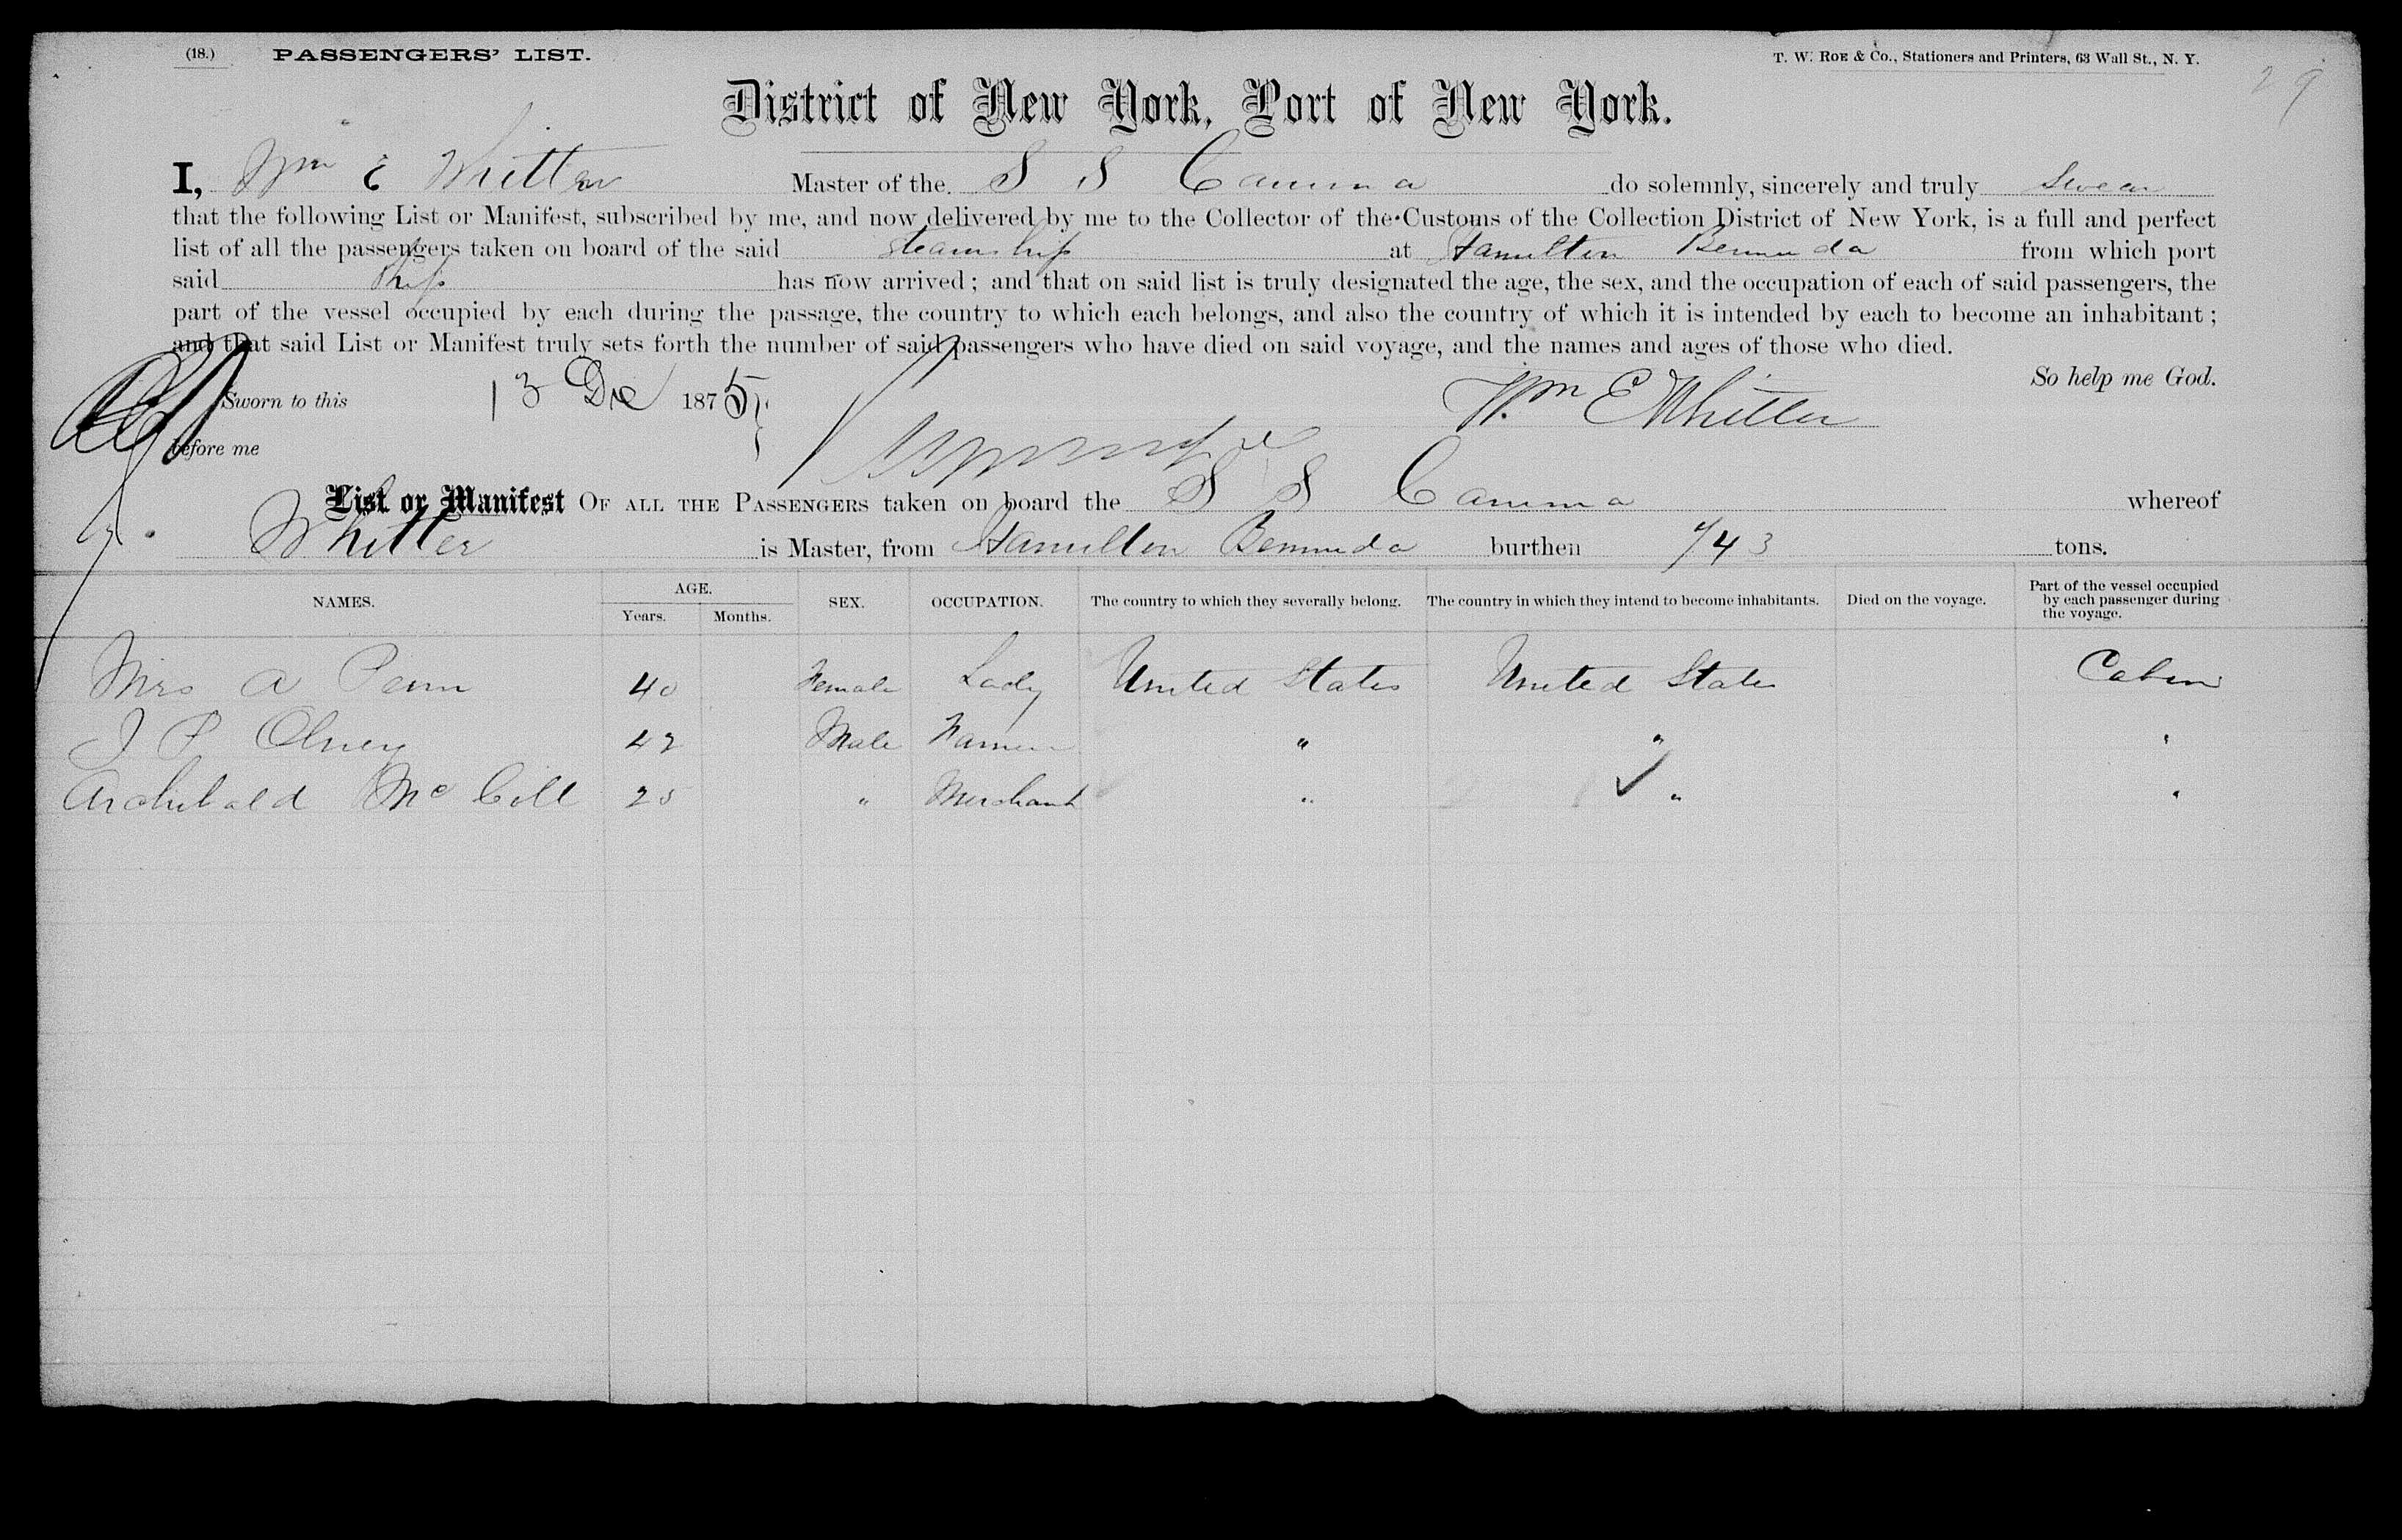 (18.) PASSENGERS' LIST. T. W. ROE & Co., Stationers and Printers, 63 Wall St., N. Y.
29
District of New York, Port of New York.
I, Wm E Whitter Master of the S S Camma do solemnly, sincerely and truly Swear
that the following List or Manifest, subscribed by me, and now delivered by me to the Collector of the Customs of the Collection District of New York, is a full and perfect
list of all the passengers taken on board of the said steamship at Hamilton Bermuda from which port
said Ship has now arrived; and that on said list is truly designated the age, the sex, and the occupation of each of said passengers, the
part of the vessel occupied by each during the passage, the country to which each belongs, and also the country of which it is intended by each to become an inhabitant;
and that said List or Manifest truly sets forth the number of said passengers who have died on said voyage, and the names and ages of those who died.
So help me God.
Sworn to this 13 Dec 1875 Wm E Whitter
before me
List or Manifest OF ALL THE PASSENGERS taken on board the S S Camma whereof
Whitter is Master, from Hamilton Bermuda burthen 743 tons.
NAMES. AGE. Years. Months. SEX. OCCUPATION. The country to which they severally belong. The country in which they intend to become inhabitants. Died on the voyage. Part of the vessel occupied by each passenger during the voyage.
Mrs A Penn 40 Female Lady United States United States Cabin
J P Olney 42 Male Farmer " " "
Archibald McGill 25 " Merchant " " "